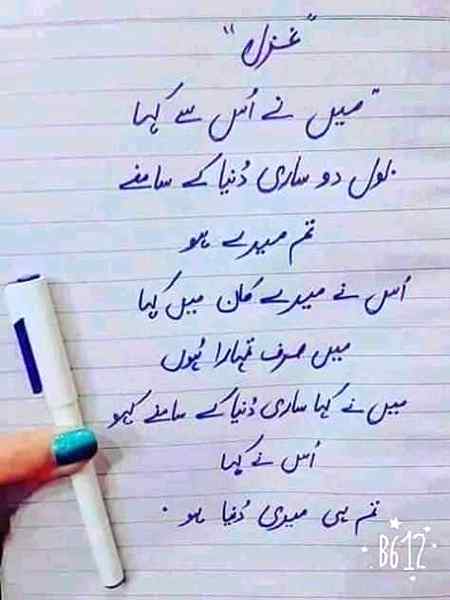 "غزل"
"میں نے اُس سے کہا
بول دو ساری دُنیا کے سامنے
تم میرے ہو
اُس نے میرے کان میں کہا
میں صرف تمہارا ہوں
میں نے کہا ساری دُنیا کے سامنے کہو
اُس نے کہا
تم ہی میری دُنیا ہو ۔
B612